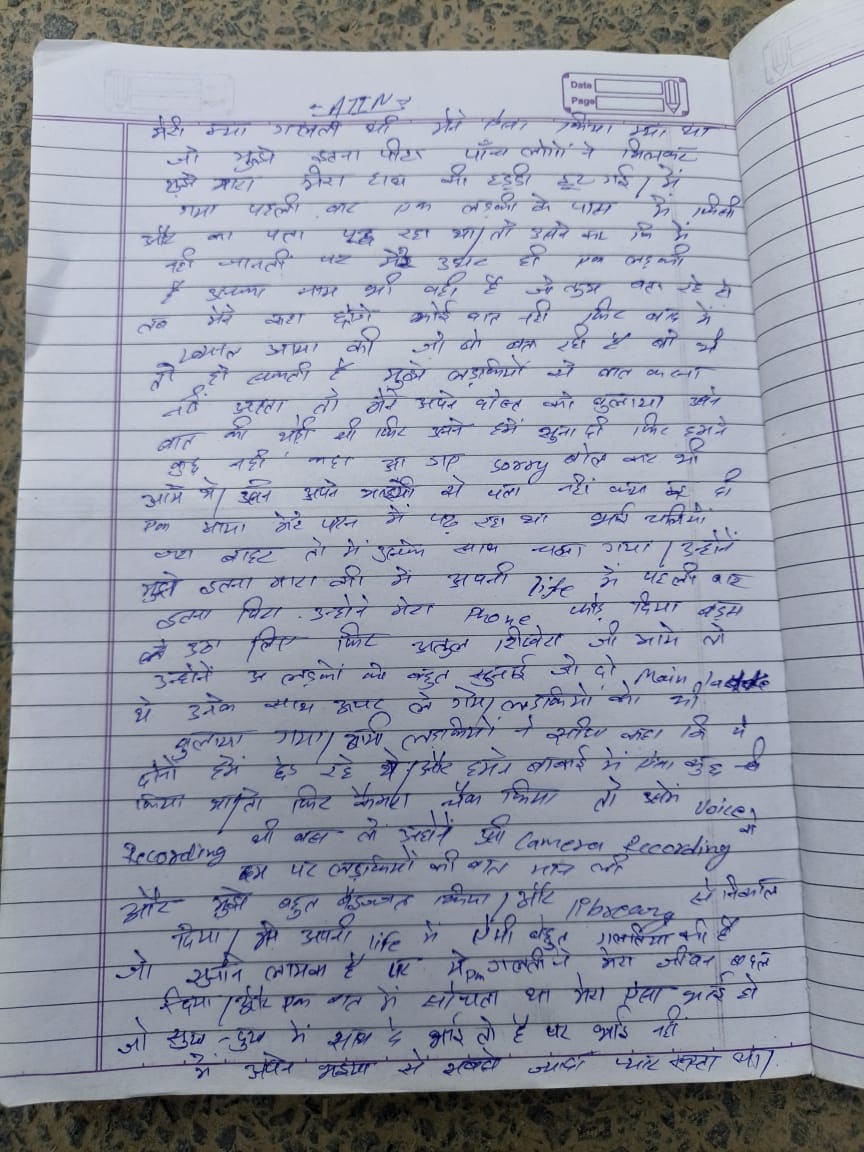 ATIN
Date
Page
मेरी क्या गलती थी मैने ऐसा किया क्या था
जो मुझे इतना पीटा पाँच लोगों ने मिलकर
मुझे मारा मेरा हाथ की हड्डी टूट गई / मैं
गया पहली बार एक लड़की के पास में किसी
और का पता पूछ रहा था / तो उसने कहा कि मैं
नही जानती पर मेरे उधर ही एक लड़की
है उसका नाम भी वही है जो तुम बता रहे हो
तब मैने कहा होगी कोई बात नही फिर बाद में
ख्याल आया की जो वो बता रही है वो भी
तो हो सकती है मुझे लड़कियों से बात करना
नही आता तो मैने अपने दोस्त को बुलाया उसने
बात की थोड़ी सी फिर उसने हमें सुना दी फिर हमने
कुछ नही कहा आ गए sorry बोल कर भी
आये थे / उसने अपने भाईयों से पता नहीं क्या कह दी
एक आया मेरे पास में पढ़ रहा था भाई चलियो
जरा बाहर तो मैं उसके साथ चला गया / उन्होंने
मुझे इतना मारा की मैं अपनी life में पहली बार
इतना पिटा उन्होंने मेरा Phone फोड़ दिया
उठा लिए फिर अतुल जी आये तो
उन्होंने उन लड़कों को बहुत सुनाई जो दो Main
थे उनके साथ ऊपर ले गये / लड़कियों को भी
बुलाया गया / लड़कियों ने सीधा कहा कि ये
दोनों हमें छेड़ रहे थे / और हमने में ऐसा कुछ नही
किया था / तो फिर कैमरा चैक किया तो उसमें voice
Recording थी तो उन्होंने Camera Recording से
पर लड़कियों की बात मान ली
और मुझे बहुत बेइज्जत किया / और library से निकाल
दिया / मैने अपनी life में ऐसी बहुत गलतियां की है
जो लायक है पर एक गलती ने मेरा जीवन बदल
दिया / और एक बात में सोचता था मेरा ऐसा भाई हो
जो सुख-दुख में साथ दे भाई तो है पर भाई नही
मैं अपने भइया से सबसे ज्यादा प्यार करता था /